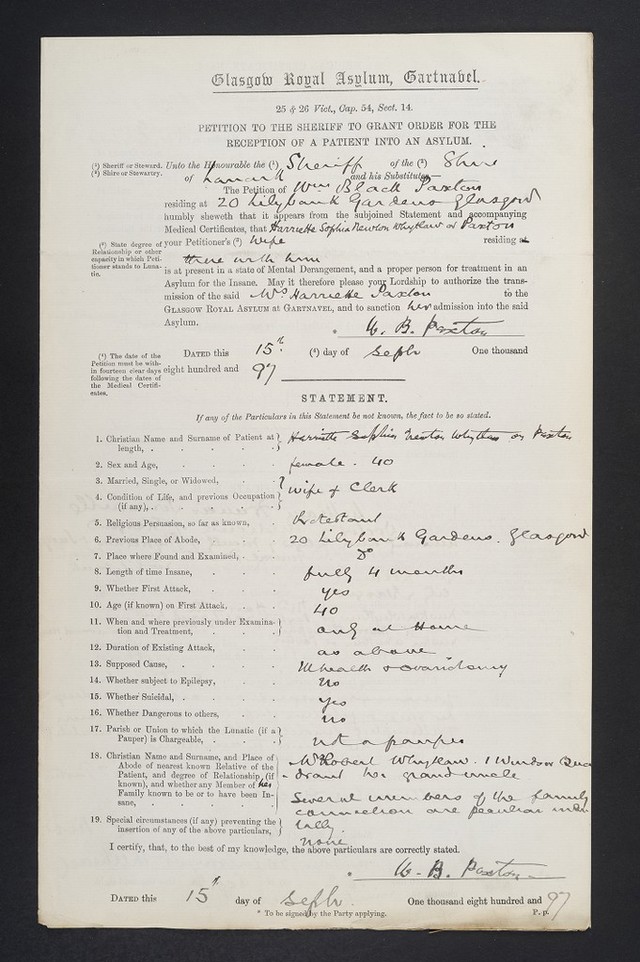 Glasgow Royal Asylum, Gartnavel.
25 & 26 Vict., Cap. 54, Sect. 14.
PETITION TO THE SHERIFF TO GRANT ORDER FOR THE
RECEPTION OF A PATIENT INTO AN ASYLUM.
(¹) Sheriff or Steward.
(²) Shire or Stewartry.
Unto the Honourable the (¹) Sheriff of the (²) Shire
of Lanark and his Substitutes—
The Petition of Wm Black Paxton
residing at 20 Lilybank Gardens Glasgow
humbly sheweth that it appears from the subjoined Statement and accompanying
Medical Certificates, that Harriette Sophia Newton Whytlaw or Paxton
(³) State degree of
Relationship or other
capacity in which Peti-
tioner stands to Luna-
tic.
your Petitioner's (³) wife residing at
there with him
is at present in a state of Mental Derangement, and a proper person for treatment in an
Asylum for the Insane. May it therefore please your Lordship to authorize the trans-
mission of the said Mrs Harriette Paxton to the
GLASGOW ROYAL ASYLUM AT GARTNAVEL, and to sanction her admission into the said
Asylum.
* W. B. Paxton
(⁴) The date of the
Petition must be with-
in fourteen clear days
following the dates of
the Medical Certifi-
cates.
DATED this 15th (⁴) day of Septr One thousand
eight hundred and 97
STATEMENT.
If any of the Particulars in this Statement be not known, the fact to be so stated.
1. Christian Name and Surname of Patient at length, Harriette Sophia Newton Whytlaw or Paxton
2. Sex and Age, female . 40
3. Married, Single, or Widowed,
4. Condition of Life, and previous Occupation (if any), wife of Clerk
5. Religious Persuasion, so far as known, Protestant
6. Previous Place of Abode, 20 Lilybank Gardens. Glasgow
7. Place where Found and Examined, Do
8. Length of time Insane, fully 4 months
9. Whether First Attack, yes
10. Age (if known) on First Attack, 40
11. When and where previously under Examination and Treatment, only at Home
12. Duration of Existing Attack, as above
13. Supposed Cause, Ill health & ovariotomy
14. Whether subject to Epilepsy, No
15. Whether Suicidal, yes
16. Whether Dangerous to others, no
17. Parish or Union to which the Lunatic (if a Pauper) is Chargeable, not a pauper
18. Christian Name and Surname, and Place of
Abode of nearest known Relative of the
Patient, and degree of Relationship (if
known), and whether any Member of her
Family known to be or to have been In-
sane,
Mr Robert Whytlaw. 1 Windsor Qua
drant her grand uncle
Several members of the family
connection are peculiar men
tally.
19. Special circumstances (if any) preventing the
insertion of any of the above particulars,
none
I certify, that, to the best of my knowledge, the above particulars are correctly stated.
* W. B. Paxton
DATED this 15th day of Septr. One thousand eight hundred and 97
* To be signed by the Party applying.
P.p.